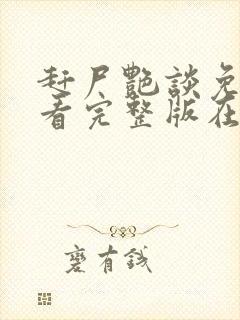 赶尸艳谈免
看完整版在
蹇有钱